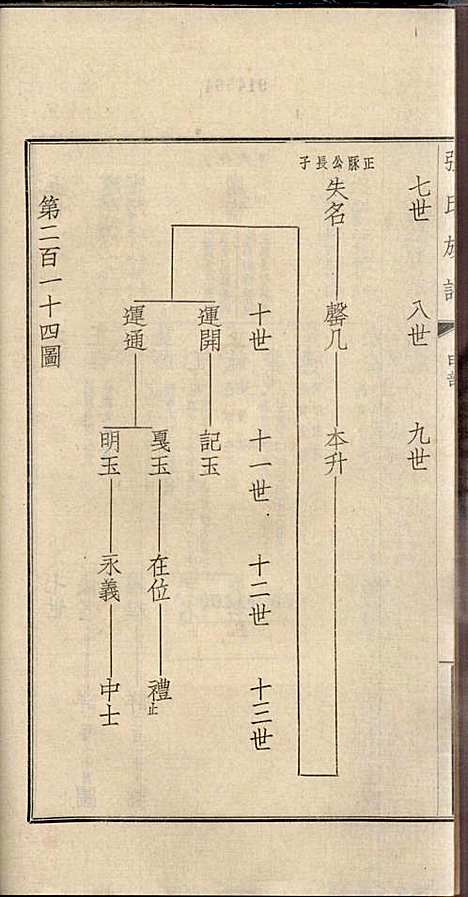 張氏族譜
七世 八世 九世
正脈公長子
失名 罄几 本升
十世 十一世 十二世 十三世
運開 記玉
運通
戛玉 在位 禮止
明玉 永義 中士
第二百一十四圖